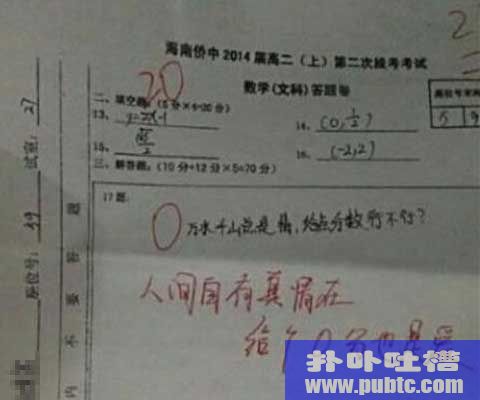 海南侨中2014届高二(上)第二次段考考试
数学(文科)答题卷
20
二、填空题:(5分×4=20分)
13、y=2x-1
14、(0,1/2)
15、
16、(-2,2)
三、解答题:(10分+12分×5=70分)
17题:
0
万水千山总是情,给点分数行不行?
人间自有真情在
给个0分也是爱
座位号:
试室:27
内
不
要
答
题
扑卟吐槽
www.pubtc.com